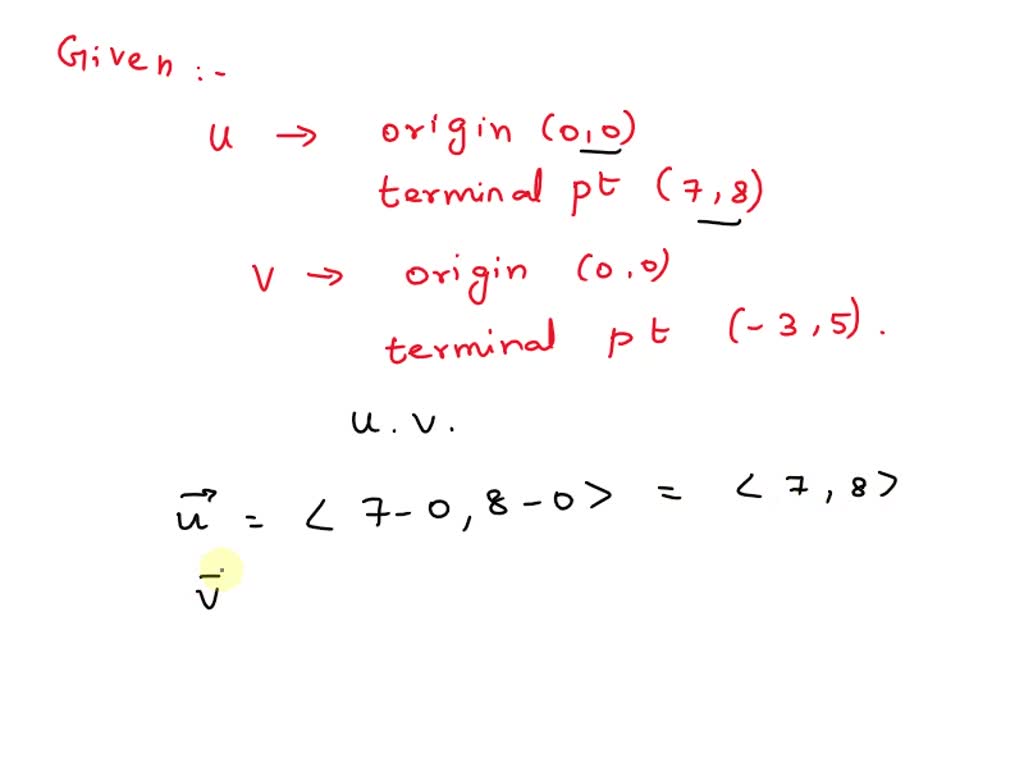 Given :-
u → origin (0,0)
terminal pt (7,8)
v → origin (0,0)
terminal pt (-3,5).
u.v.
u⃗ = < 7-0, 8-0> = < 7, 8>
v̅